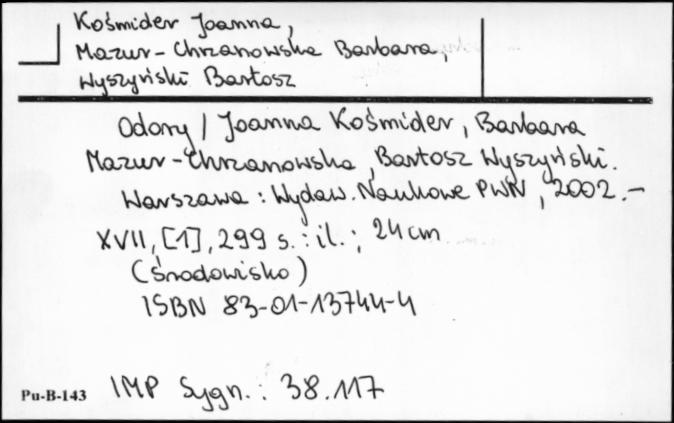 Kośmider Joanna,
Mazur-Chrzanowska Barbara,
Wyszyński Bartosz
Odory / Joanna Kośmider, Barbara
Mazur-Chrzanowska, Bartosz Wyszyński.
Warszawa : Wydaw. Naukowe PWN, 2002.-
XVII, [1], 299 s. : il. ; 24 cm
(Środowisko)
ISBN 83-01-13744-4
Pu-B-143 IMP Sygn. : 38.117